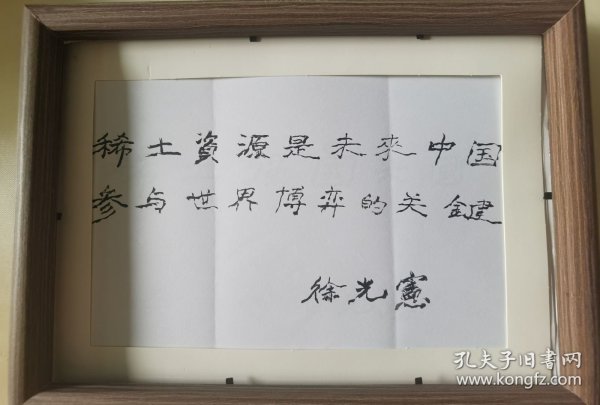 稀土資源是未來中国
参与世界博弈的关鍵
徐光憲
孔夫子旧书网
www.kongfz.com